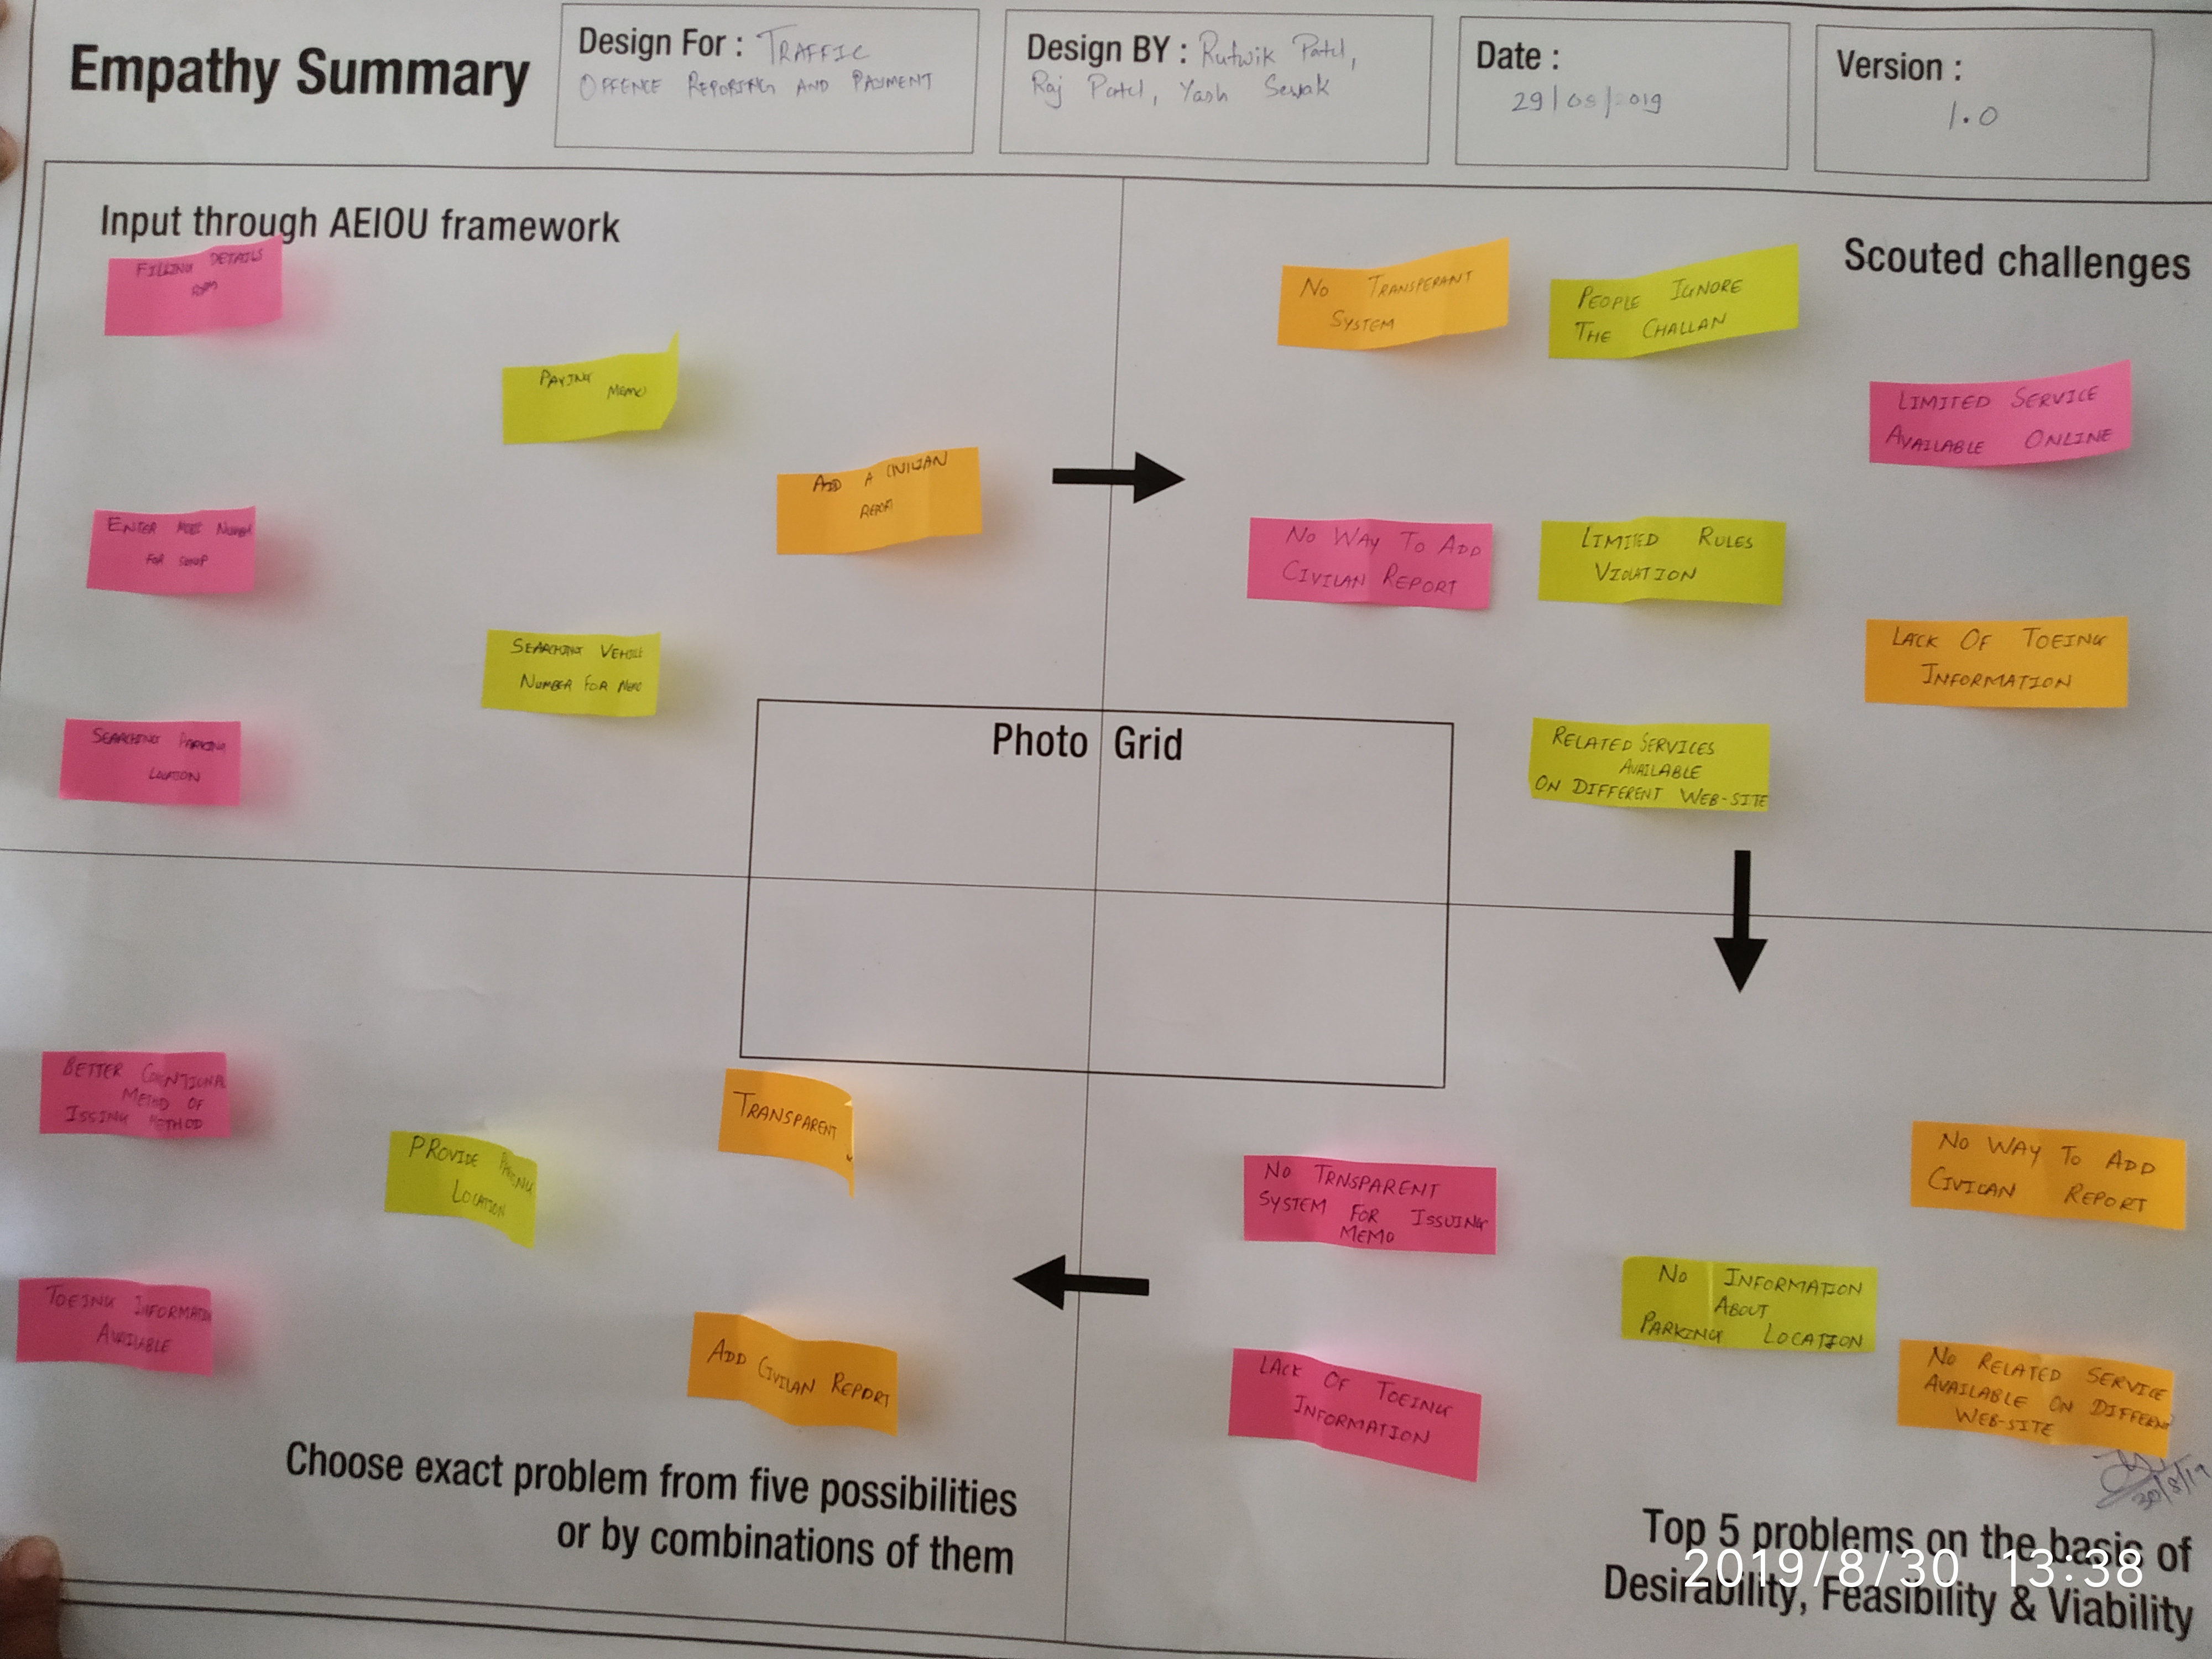 Empathy Summary
Design For : TRAFFIC
OFFENCE REPORTING AND PAYMENT
Design BY : Rutwik Patel,
Raj Patel, Yash Sevak
Date :
29/08/2019
Version :
1.0
Input through AEIOU framework
FILLING DETAILS
PAYING
MEMO
ADD A CIVILIAN
REPORT
ENTER NUMBER
FOR
SEARCHING VEHICLE
NUMBER FOR MEMO
SEARCHING PARKING
LOCATION
Scouted challenges
NO TRANSPERANT
SYSTEM
PEOPLE IGNORE
THE CHALLAN
LIMITED SERVICE
AVAILABLE ONLINE
NO WAY TO ADD
CIVILAN REPORT
LIMITED RULES
VIOLATION
LACK OF TOEING
INFORMATION
RELATED SERVICES
AVAILABLE
ON DIFFERENT WEB-SITE
Photo Grid
BETTER
METHOD OF
ISSING METHOD
PROVIDE PARKING
LOCATION
TRANSPARENT
TOEING INFORMATION
AVAILABLE
ADD CIVILAN REPORT
Choose exact problem from five possibilities
or by combinations of them
NO TRNSPARENT
SYSTEM FOR ISSUING
MEMO
NO WAY TO ADD
CIVILAN REPORT
NO INFORMATION
ABOUT
PARKING LOCATION
LACK OF TOEING
INFORMATION
NO RELATED SERVICE
AVAILABLE ON DIFFERENT
WEB-SITE
30/8/19
Top 5 problems on the basis of
Desirability, Feasibility & Viability
2019/8/30 13:38